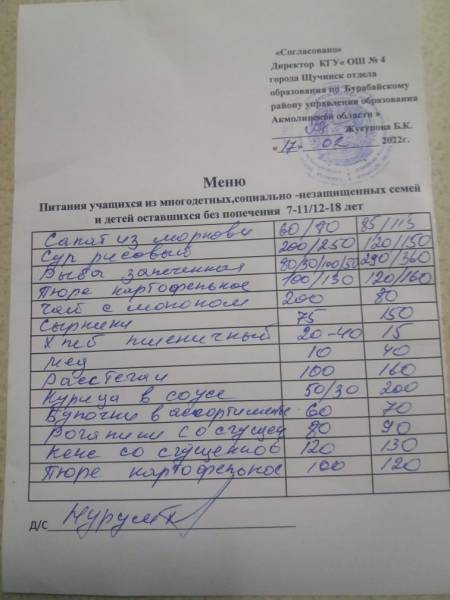 «Согласовано»
Директор КГУ« ОШ № 4
города Щучинск отдела
образования по Бурабайскому
району управления образования
Акмолинской области »
Жукупова Б.К.
«17» 02 2022г.
Меню
Питания учащихся из многодетных,социально -незащищенных семей
и детей оставшихся без попечения 7-11/12-18 лет
Салат из моркови 60/80 85/113
Суп рисовый 200/250 120/150
Рыба запеченная 80/50/100/50 290/360
Пюре картофельное 100/130 120/160
Чай с молоком 200 80
Сырники 75 150
Хлеб пшеничный 20-40 15
Мед 10 40
Расстегаи 100 160
Курица в соусе 50/30 200
Булочки в ассортименте 60 70
Рогалики со сгущен 80 90
Кекс со сгущенкой 120 130
Пюре картофельное 100 120
Д/С